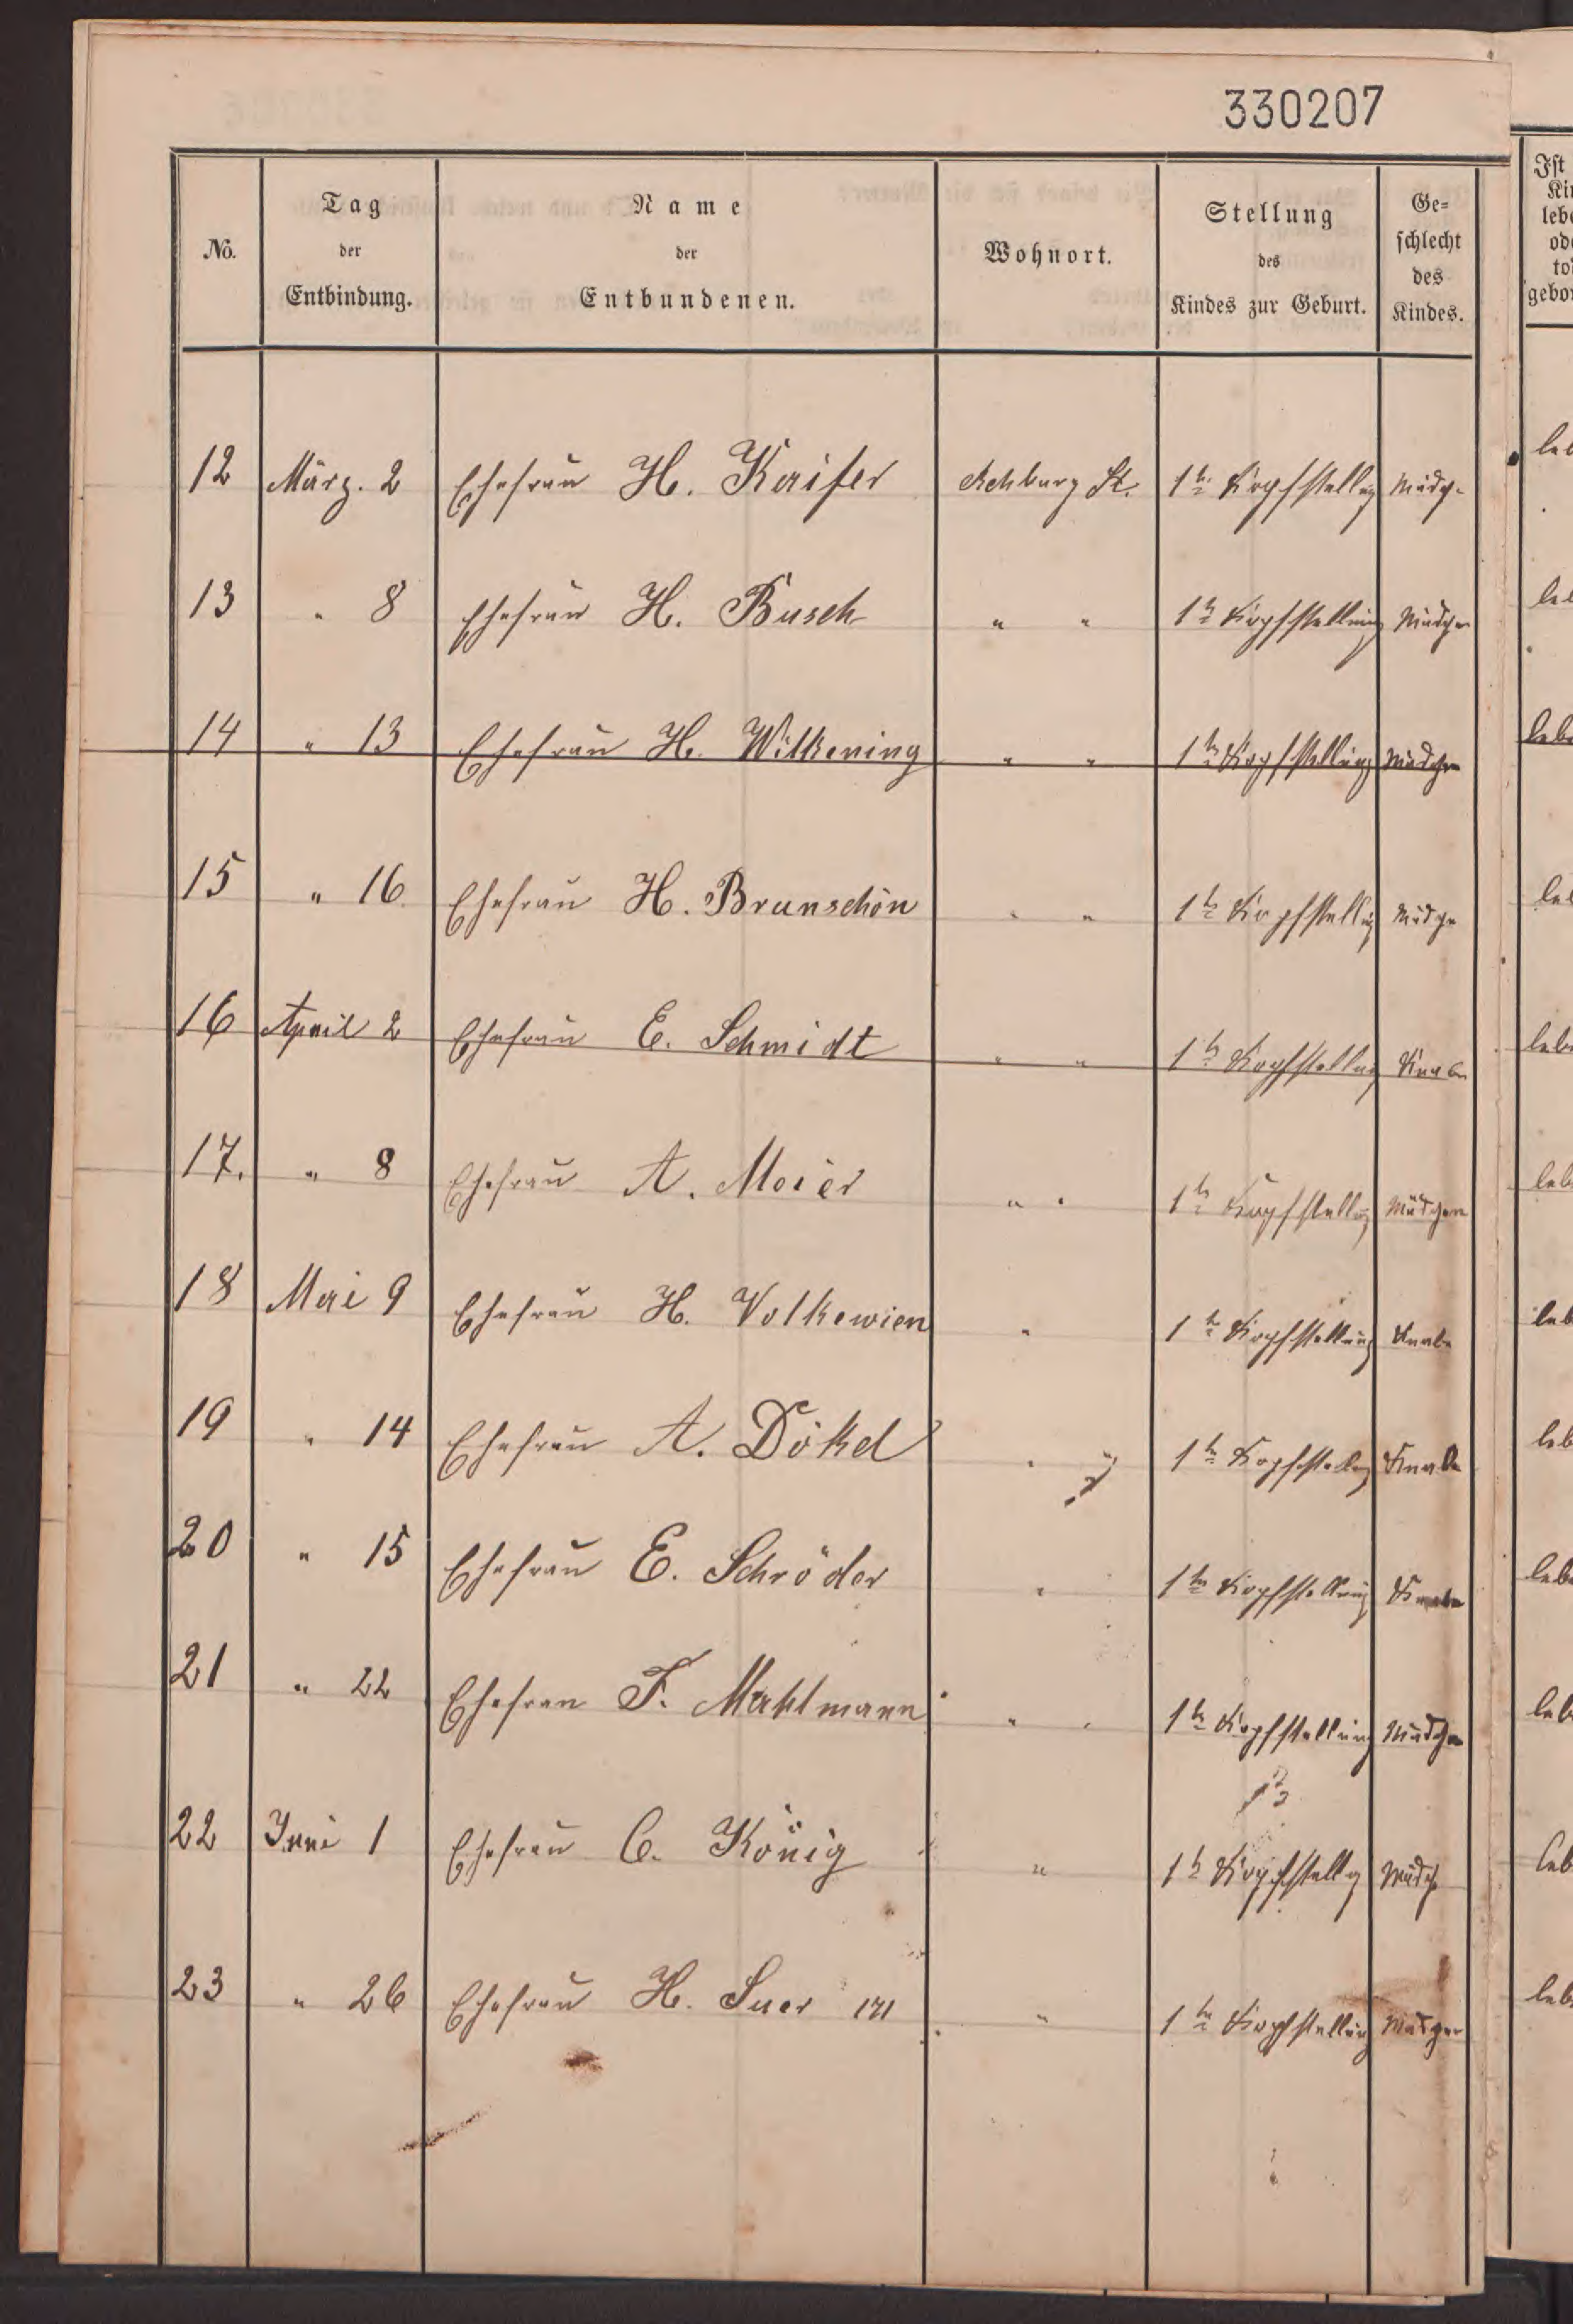 330207
No. Tag der Entbindung. Name der Entbundenen. Wohnort. Stellung des Kindes zur Geburt. Ge=schlecht des Kindes.
12 März. 2 Ehefrau H. Kaiser Rehburg St. 1te Kopfstellug Mädch.
13 " 8 Ehefrau H. Busch " " 1te Kopfstellung Mädchen
14 " 13 Ehefrau H. Wilkening " " 1te Kopfstellung Mädchen
15 " 16 Ehefrau H. Brunschön " " 1te Kopfstellug Mädche
16 April 2 Ehefrau E. Schmidt " " 1te Kopfstellug Knabe
17. " 8 Ehefrau A. Meier " " 1te Kopfstellug Mädchen
18 Mai 9 Ehefrau H. Volkewien " 1te Kopfstellung Knabe
19 " 14 Ehefrau A. Dökel " " 1te Kopfstellug Knabe
20 " 15 Ehefrau E. Schröder " 1te Kopfstellung Knabe
21 " 22 Ehefrau F. Mahlmann " " 1te Kopfstellung Mädchen
22 Juni 1 Ehefrau C. König " 1te Kopfstellg Mädch
23 " 26 Ehefrau H. Suer 171 " 1te Kopfstellung Mädchen